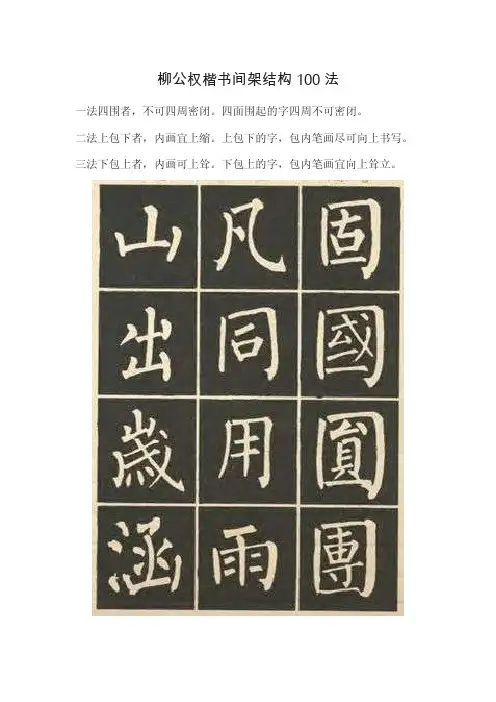 柳公权楷书间架结构 100 法
一法四围者，不可四周密闭。四面围起的字四周不可密闭。
二法上包下者，内画宜上缩。上包下的字，包内笔画尽可向上书写。
三法下包上者，内画可上耸。下包上的字，包内笔画宜向上耸立。
固國圓團
凡同用雨
山出嵗涵